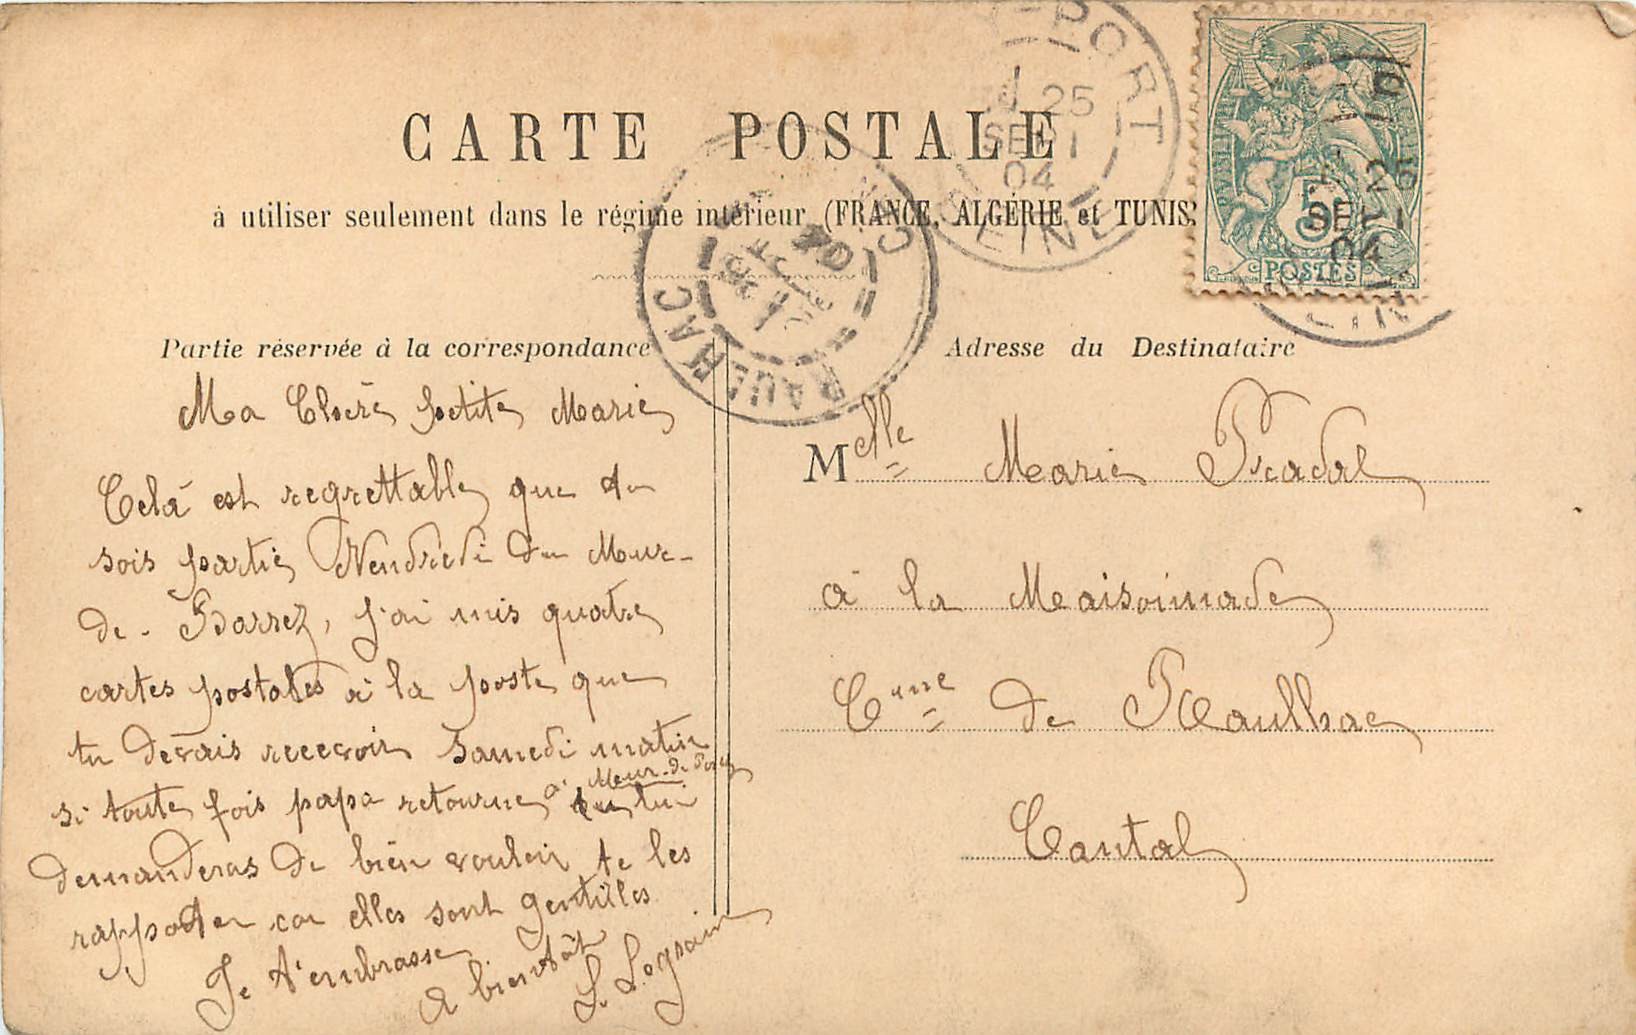 CARTE POSTALE
à utiliser seulement dans le régime intérieur (FRANCE, ALGÉRIE et TUNIS
Partie réservée à la correspondance
Ma Chère petite Marie
Celà est regrettable que tu
sois partie Vendredi du Mur-
de-Barrez, j'ai mis quatre
cartes postales à la poste que
tu devais recevoir Samedi matin
si toute fois papa retourne à Mur-de-Barrez tu lui
demanderas de bien vouloir te les
rapporter car elles sont gentilles
Je t'embrasse
A bientôt
Adresse du Destinataire
Melle Marie Pradal
à la Maisoinnade
Cnne de Raulhac
Cantal
PORT
25
SEPT
04
RAULHAC
5
POSTES
25
SEPT
04